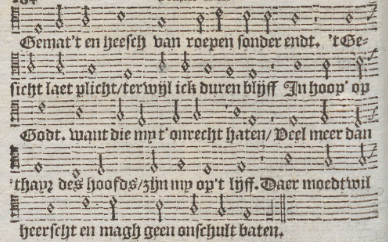 Gemat't en heesch van roepen sonder endt. 't Ge-
sicht laet plicht/terwijl ick duren blijff In hoop' op
Godt. want die my t'onrecht haten/Veel meer dan
'thayr des hoofds/zijn my op't lijff. Daer moedtwil
heerscht en magh geen onschult baten.